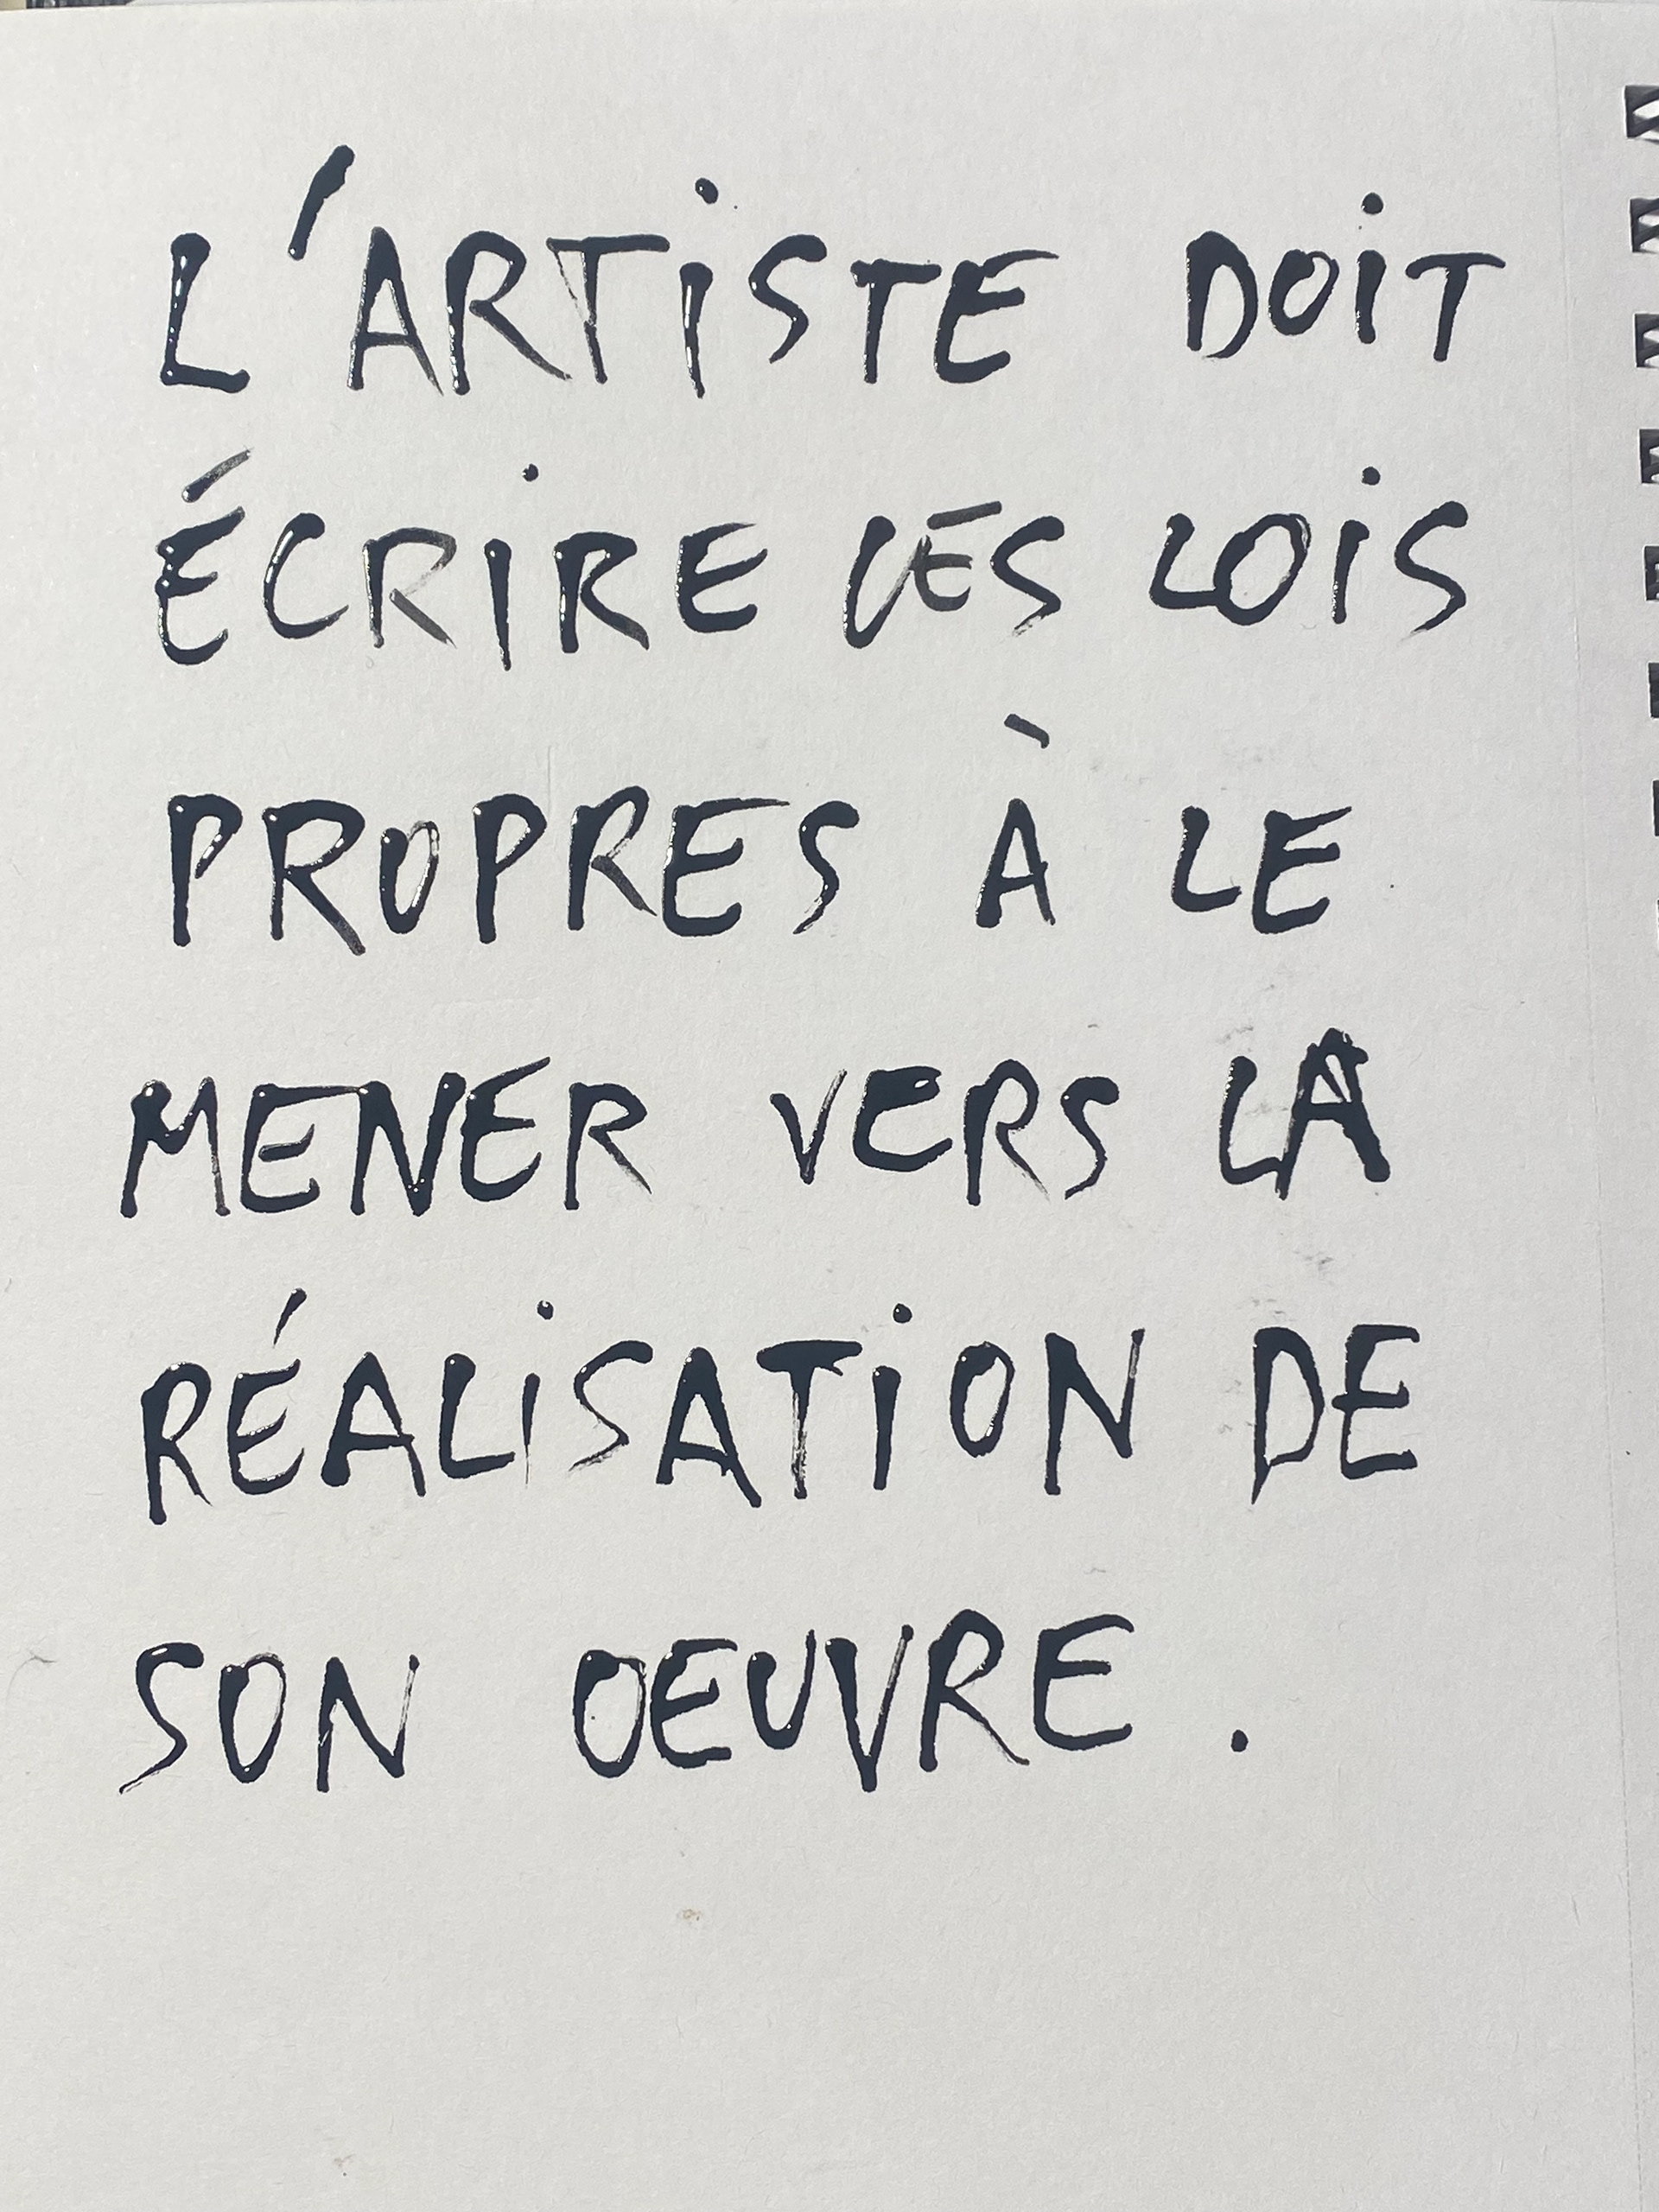 L'ARTiSTE DOiT
ÉCRIRE LES LOIS
PROPRES À LE
MENER VERS LA
RÉALiSATiON DE
SON OEUVRE.